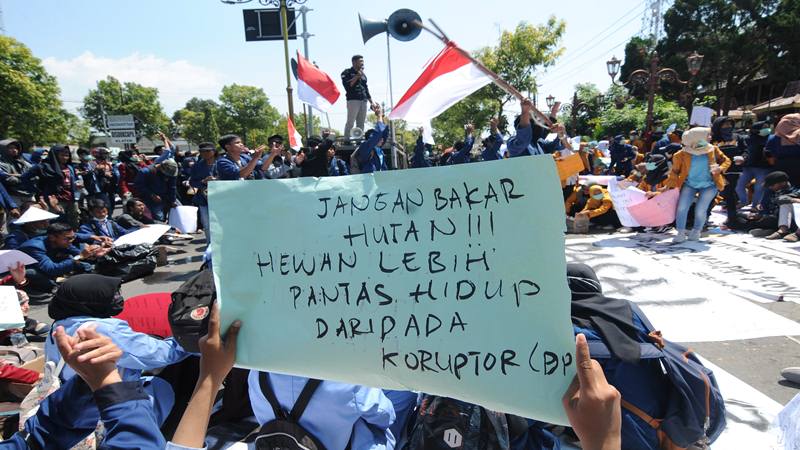 JANGAN BAKAR
HUTAN!!!
HEWAN LEBIH
PANTAS HIDUP
DARIPADA
KORUPTOR (DP